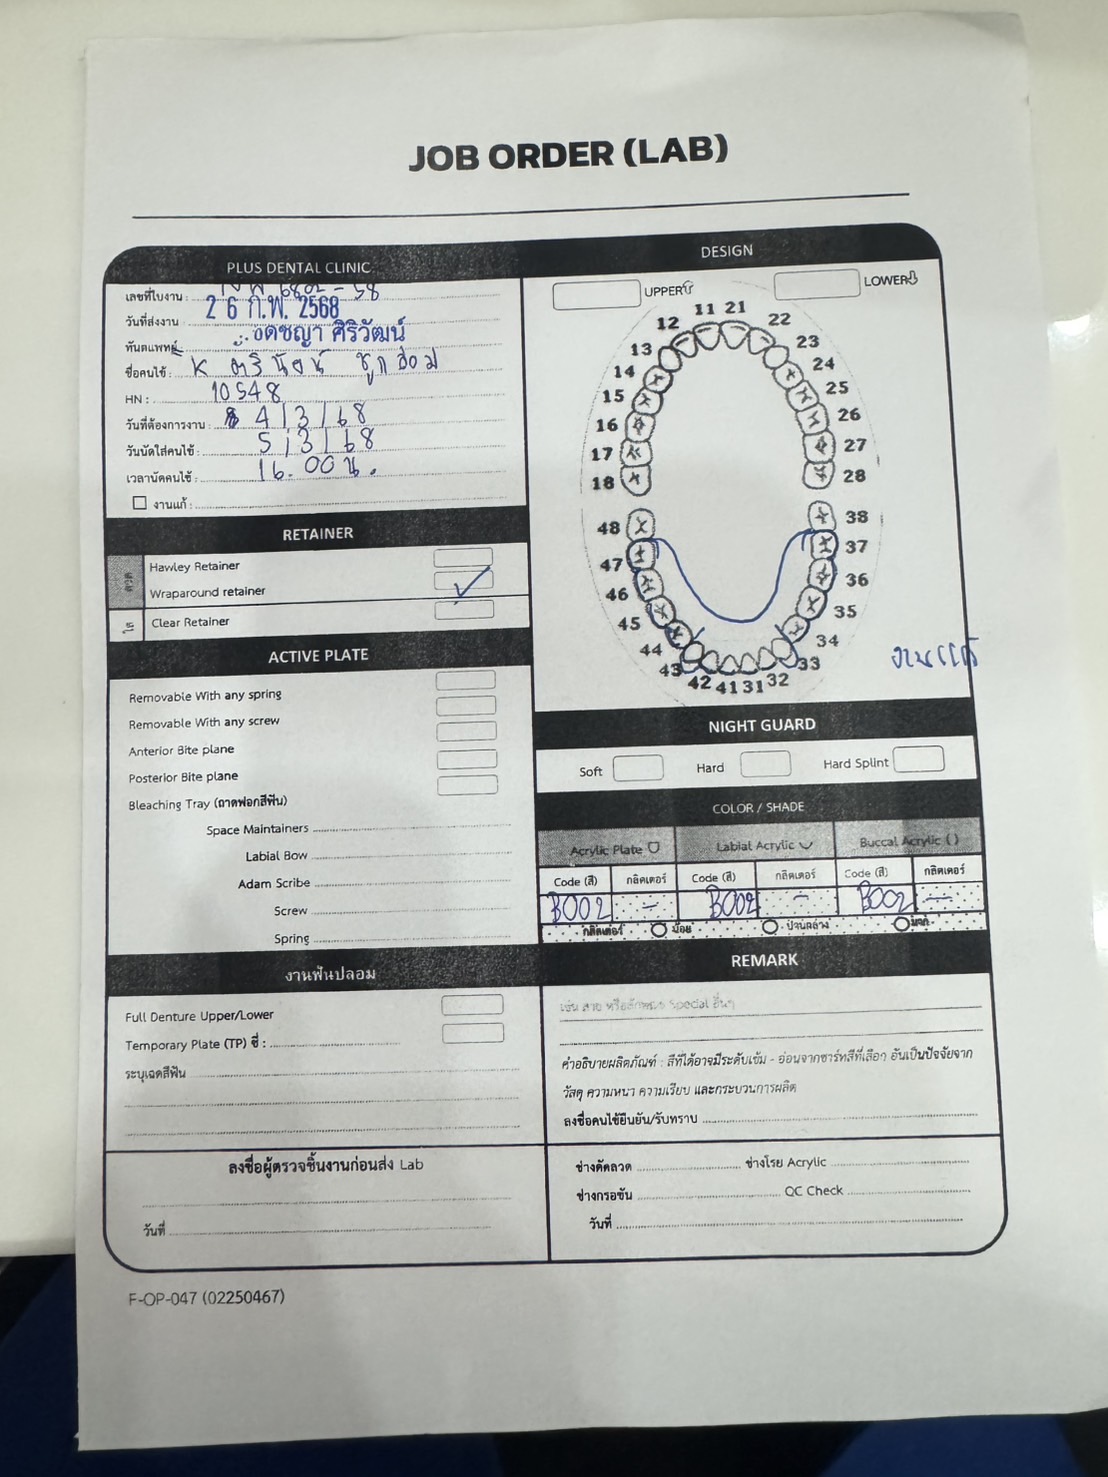 JOB ORDER (LAB)
PLUS DENTAL CLINIC
เลขที่ใบงาน : 6802-58
วันที่ส่งงาน : 26 ก.พ. 2568
ทันตแพทย์ ศิริวัฒน์
ชื่อคนไข้ : K
HN : 10548
วันที่ต้องการงาน : 4/3/68
วันนัดใส่คนไข้ : 5/3/68
เวลานัดคนไข้ : 16.00 น.
งานแก้ :
RETAINER
ลวด
Hawley Retainer
Wraparound retainer ✓
ใส
Clear Retainer
ACTIVE PLATE
Removable With any spring
Removable With any screw
Anterior Bite plane
Posterior Bite plane
Bleaching Tray (ถาดฟอกสีฟัน)
Space Maintainers
Labial Bow
Adam Scribe
Screw
Spring
งานฟันปลอม
Full Denture Upper/Lower
Temporary Plate (TP) ซี่ :
ระบุเฉดสีฟัน
ลงชื่อผู้ตรวจชิ้นงานก่อนส่ง Lab
วันที่
DESIGN
UPPER LOWER
11 21
12 22
13 23
14 24
15 25
16 26
17 27
18 28
48 38
47 37
46 36
45 35
44 34
43 33
42 41 31 32
งานแก้
NIGHT GUARD
Soft Hard Hard Splint
COLOR / SHADE
Acrylic Plate Labial Acrylic Buccal Acrylic ( )
Code (สี) กลิตเตอร์ Code (สี) กลิตเตอร์ Code (สี) กลิตเตอร์
B002 - B002 - B002 -
กลิตเตอร์ น้อย ปานกลาง มาก
REMARK
เช่น ลาย หรือลักษณะ Special อื่นๆ
คำอธิบายผลิตภัณฑ์ : สีที่ได้อาจมีระดับเข้ม - อ่อนจากชาร์ทสีที่เลือก อันเป็นปัจจัยจาก
วัสดุ ความหนา ความเรียบ และกระบวนการผลิต
ลงชื่อคนไข้ยืนยัน/รับทราบ
ช่างดัดลวด ช่างโรย Acrylic
ช่างกรอขัน QC Check
วันที่
F-OP-047 (02250467)